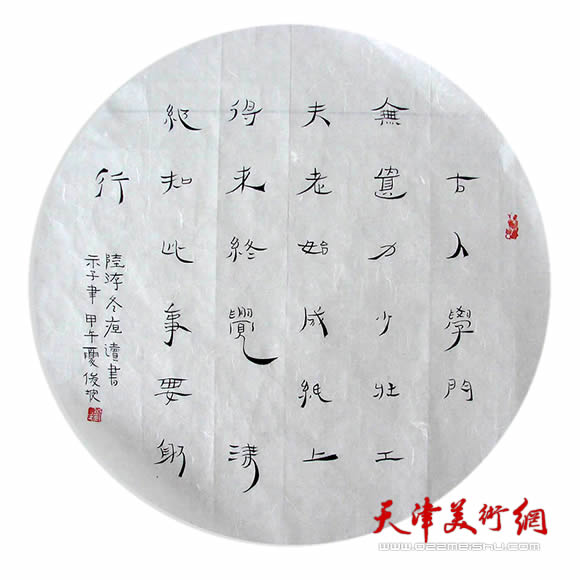 古人學門
無遺力少壯工
夫老始成紙上
得來終覺淺
絕知此事要躬
行
陸游冬夜讀書
示子聿 甲午夏俊
天津美術網
www.022meishu.com